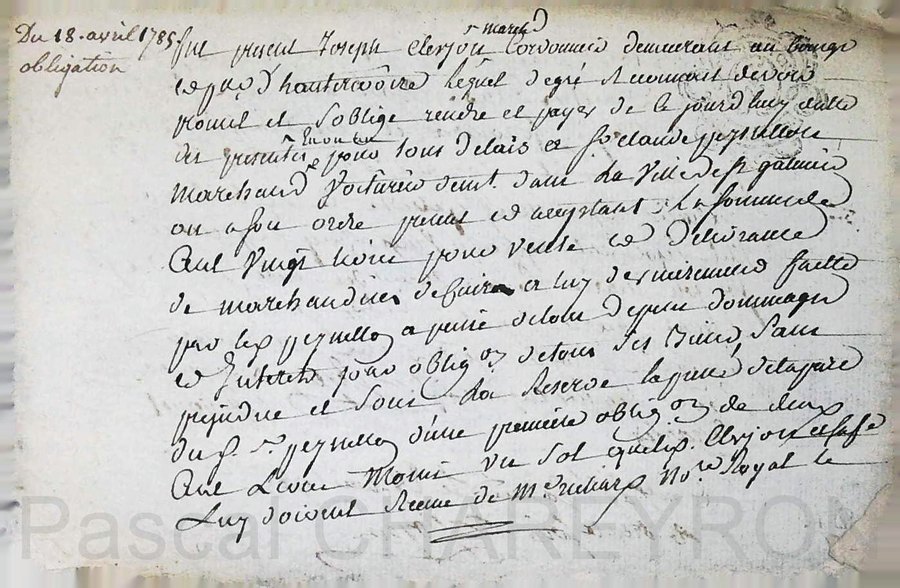 Du 18. avril 1785
obligation
fut present Joseph Clerjon marchd Cordonnier demeurant au bourg
et de hauterivoire lequel de gré et reconnoit devoir
promet et s'oblige rendre et payer de ce jourd'huy datte
des presentes pour tous delais a Sr claude peyrellon
marchand voiturier demt. dans La Ville de St galmier
ou a son ordre present et acceptant, La somme de
Cent Vingt livres pour vente et Delivrance
de marchandises de cuirs a luy faitte
par led peyrellon a peine de tous depens dommages
et Interets pour obligon de tous ses biens, Sans
prejudice et sous La Reserve de la part
du d. Sr. peyrellon d'une premiere obligon de deux
Cent Livres Moins un sol que led. Clerjon
Luy doivent Receue de Me richard Nore Royal le
Pascal CHAREYRON